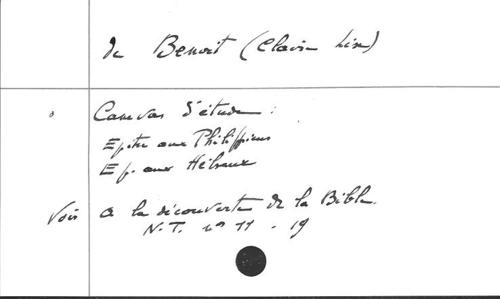 de Benoit (Claire Lise)
Canevas d'étude :
Epitre aux Philippiens
Ep. aux Hébreux
Voir A la découverte de la Bible.
N.T. nos 11 - 19